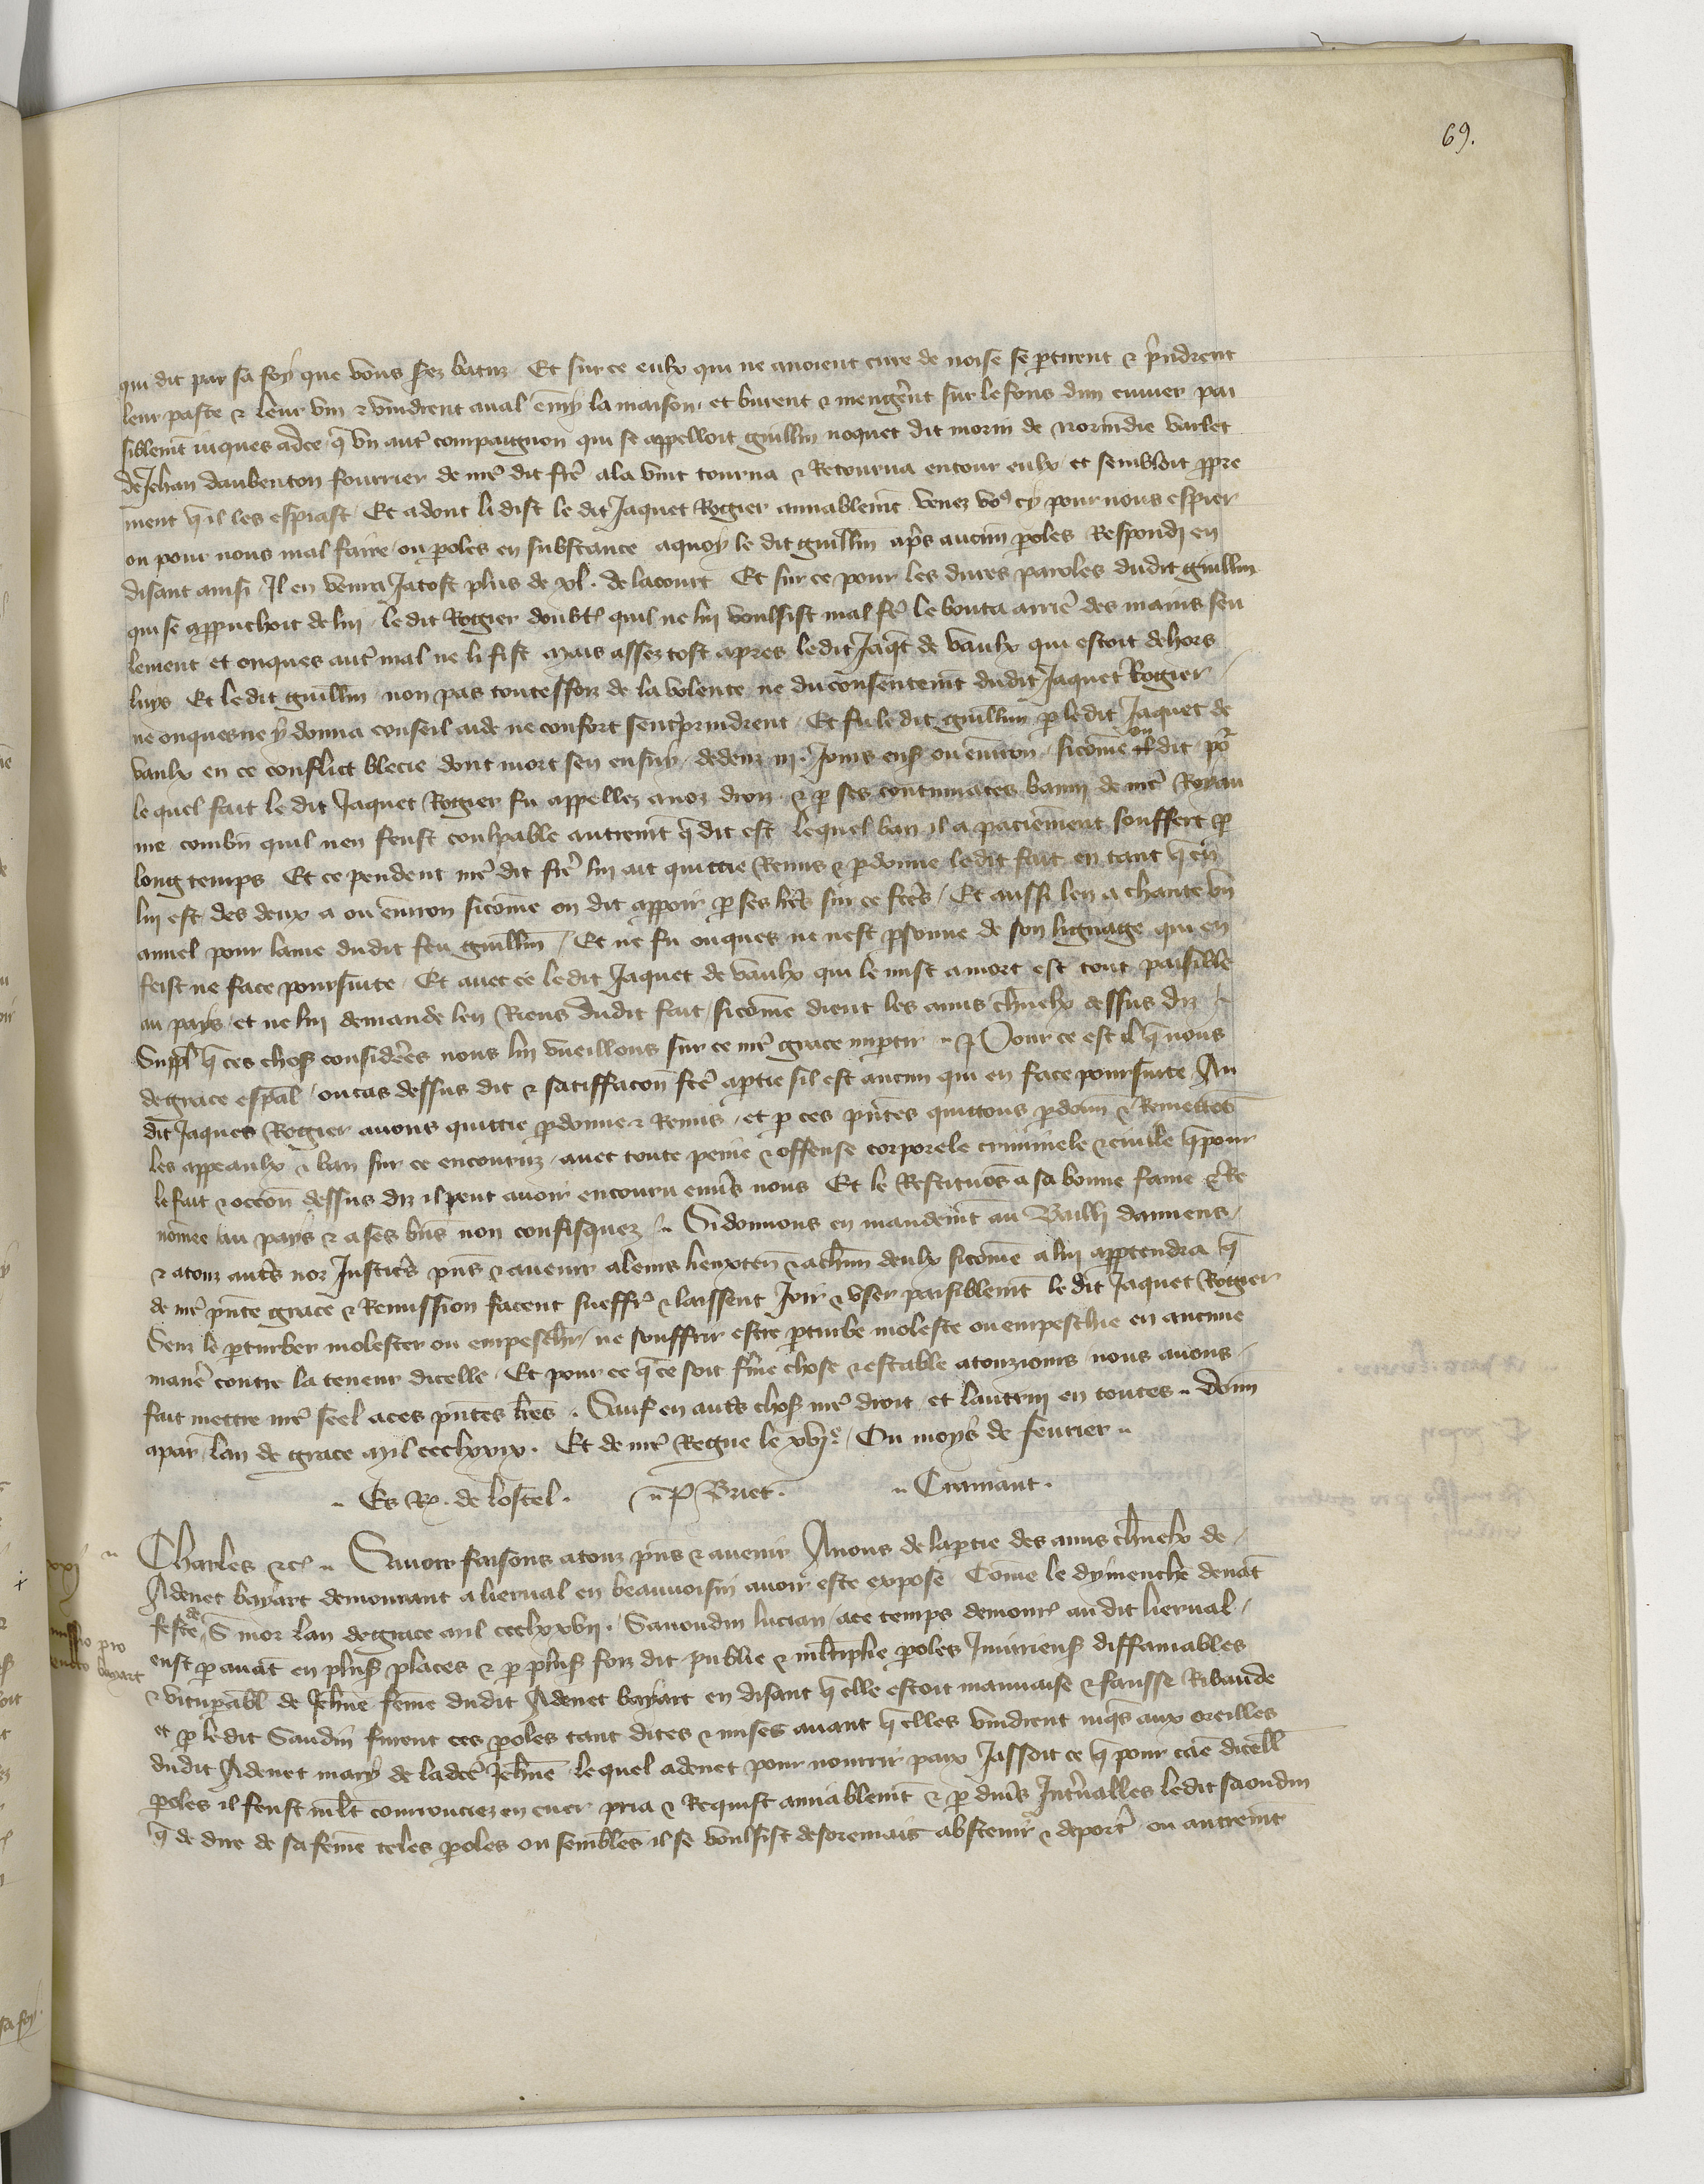 69.
qui dit par sa foy que vous serez batuz Et sur ce eulx qui ne auoient cure de noise se ptirent & prindrent
leur paste & leur vin & vindrent aual emy la maison et burent & mengerent sur le fons dun cuuier pai
siblemt iuques adce q vn autre compaignon qui se appelloit guillm noquet dit morin de normdie varlet
de Jehan daubenton fourrier de nre dit fre ala vint tourna & Retourna entour eulx et sembloit ppre
ment quil les espiast Et adont li dist le dit Jaquet Rogier amiablemt venez vos cy pour nous espier
ou pour nous mal faire ou poles en substance aquoy le dit guillm aprs aucun poles Respondi en
disant ainsi Il en venra Jatost plus de xl. de lacourt Et sur ce pour les dures paroles dudit guillm
qui se approuchoit de lui le dit Rogier doubte quil ne lui voulsist mal fe le bouta arrie des mains seu
lement et onques autre mal ne li fist mais assez tost apres le dit Jaqt de vaulx qui estoit dehors
luys Et le dit guillm non pas toutesfoiz de la volente ne du consentemt dudit Jaquet Rogier
ne onques ne y donna conseil aide ne confort sentreprindrent Et fu le dit guillm p le dit Jaquet de
vaulx en ce conflict blecie dont mort sen ensuy dedenz iij. Jours ens ou enuiron sicome on dit por
le quel fait le dit Jaquet Rogier fu appellez anoz droiz & p ses contumaces banny de nre Royau
me combn quil nen feust coulpable autremt q dit est lequel ban il a paciemment souffert p
long temps Et ce pendent nre dit fre lui ait quittie Remis & pdonne le dit fait en tant q en
lui est des deux a ou enuiron sicome on dit apparoir p ses lres sur ce fces Et aussi len a chante vn
annel pour lame dudit feu guillm Et ne fu onques ne nest psonne de son lignage qui en
feist ne face poursuite Et auec ce le dit Jaquet de vaulx qui le mist a mort est tout paisible
au pays et ne lui demande len Riens dudit fait sicome dient les amis chnelx dessus diz
Suppl q ces chos considerees nous lui vueillons sur ce nre grace imptir Pour ce est il q nous
de grace espal ou cas dessus dit & satiffacon fce aptie sil est aucun qui en face poursuite Au
dit Jaques Rogier auons quittie pdonne & Remis et p ces pntes quittons pdonn & Remettos
les appeaulx & ban sur ce encouruz auec toute peine & offense corporele criminele & ciuile q pour
le fait & occon dessus diz il peut auoir encouru enuers nous Et le Restituos a sa bonne fame & Re
nomee au pays & a ses bns non confisquez Si donnons en mandemt au Bailli damiens
& atouz autres noz Justicrs pns & auenir aleurs lieuxten & achun deulx sicome a lui apptendra q
de nre pnte grace & Remission facent sueffr & laissent Joir & vser paisiblemt le dit Jaquet Rogier
Senz le pturber molester ou empeschr ne souffrir estre pturbe moleste ou empeschie en aucune
manre contre la teneur dicelle Et pour ce q ce soit fme chose & estable atouziours nous auons
fait mettre nre seel aces pntes lres Sauf en autres chos nre droit et lautruy en toutes Donn
apar lan de grace mil ccclxxix. Et de nre Regne le xvje. Ou moys de feurier
Es Rx. de lostel. P Briet. Cramant.
Charles &c Sauoir faisons atouz pns & auenir Anous de laptie des amis chnelx de
Adenet bayart demourant a lierual en beauuoisin auoir este expose Come le dymenche deuat
feste de S mor lan degrace mil ccclxxvij. Sauoudin lucian ace temps demour au dit lierual
eust p auat en plus places & p plus foiz dit publie & mltiplie poles Iniurieus diffamables
& vitupabl de Jehne feme dudit Adenet bayart en disant q elle estoit mauuaise & fausse Ribaude
et p le dit Saudin furent ces poles tant dites & mises auant q elles vindrent iuqs aux oreilles
dudit Adenet mary de ladce Jehne lequel adenet pour nourrir paix Jassoit ce q pour cae dicell
poles il feust mlt courrouciez en cuer pria & Requist amiablemt & p diurs Interualles ledit saoudin
q de dire de sa feme teles poles ou sembles il se voulsist desoremais abstenir & deportr ou autremt
xxj
missio pro
eneto bayart